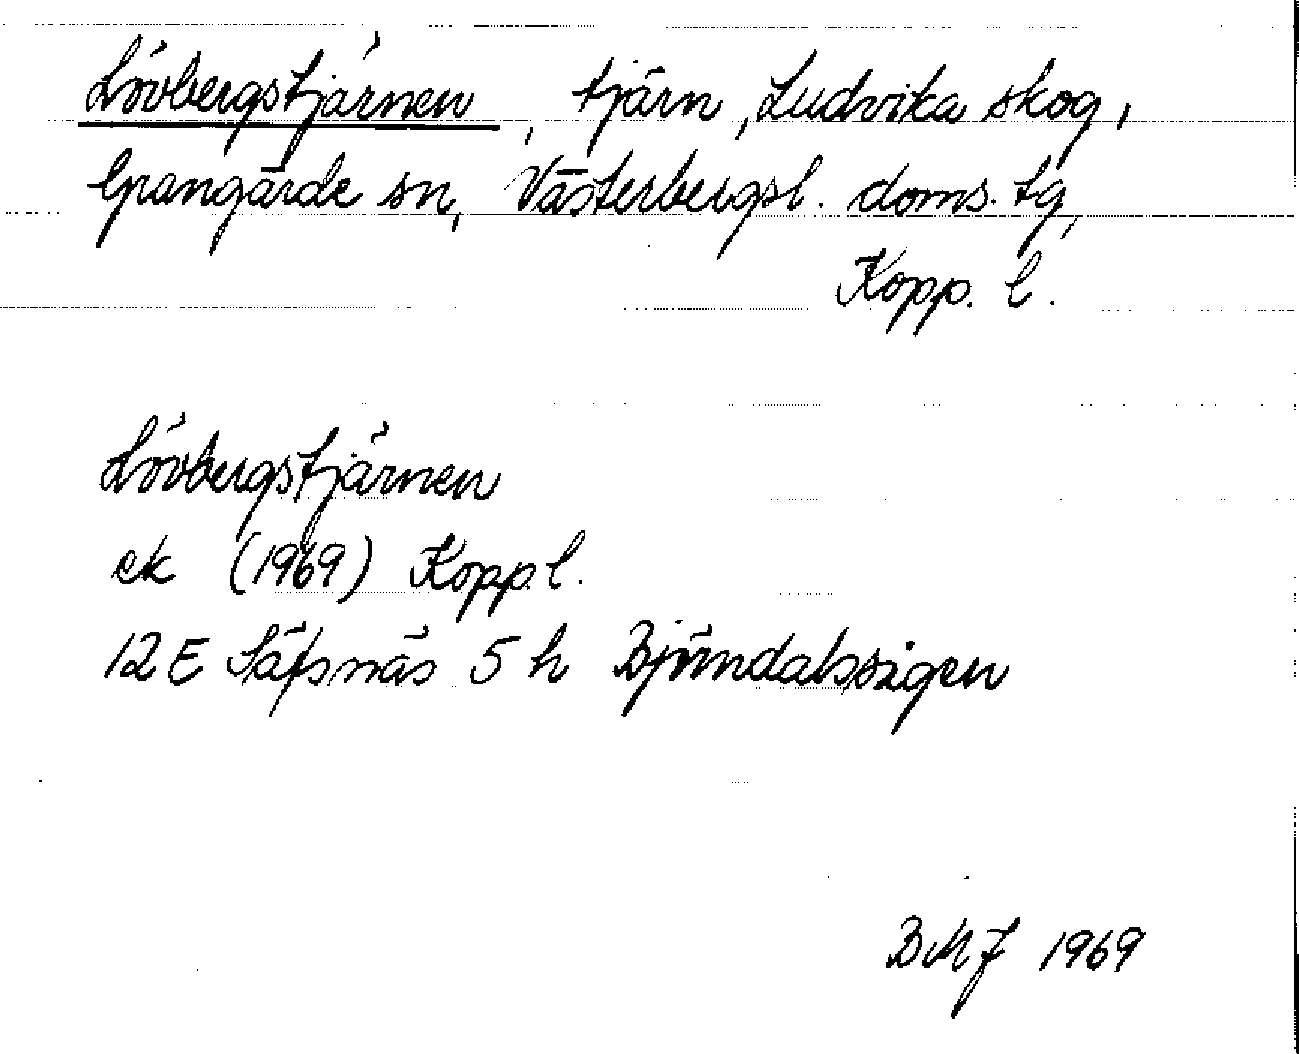 Lövbergstjärnen, tjärn, Ludvika skog,
Grangärde sn, Västerbergsl. doms. tg,
Kopp. l.
Lövbergstjärnen
ek (1969) Kopp l.
12 E Säfsnäs 5 h Björndalssigen
BMJ 1969